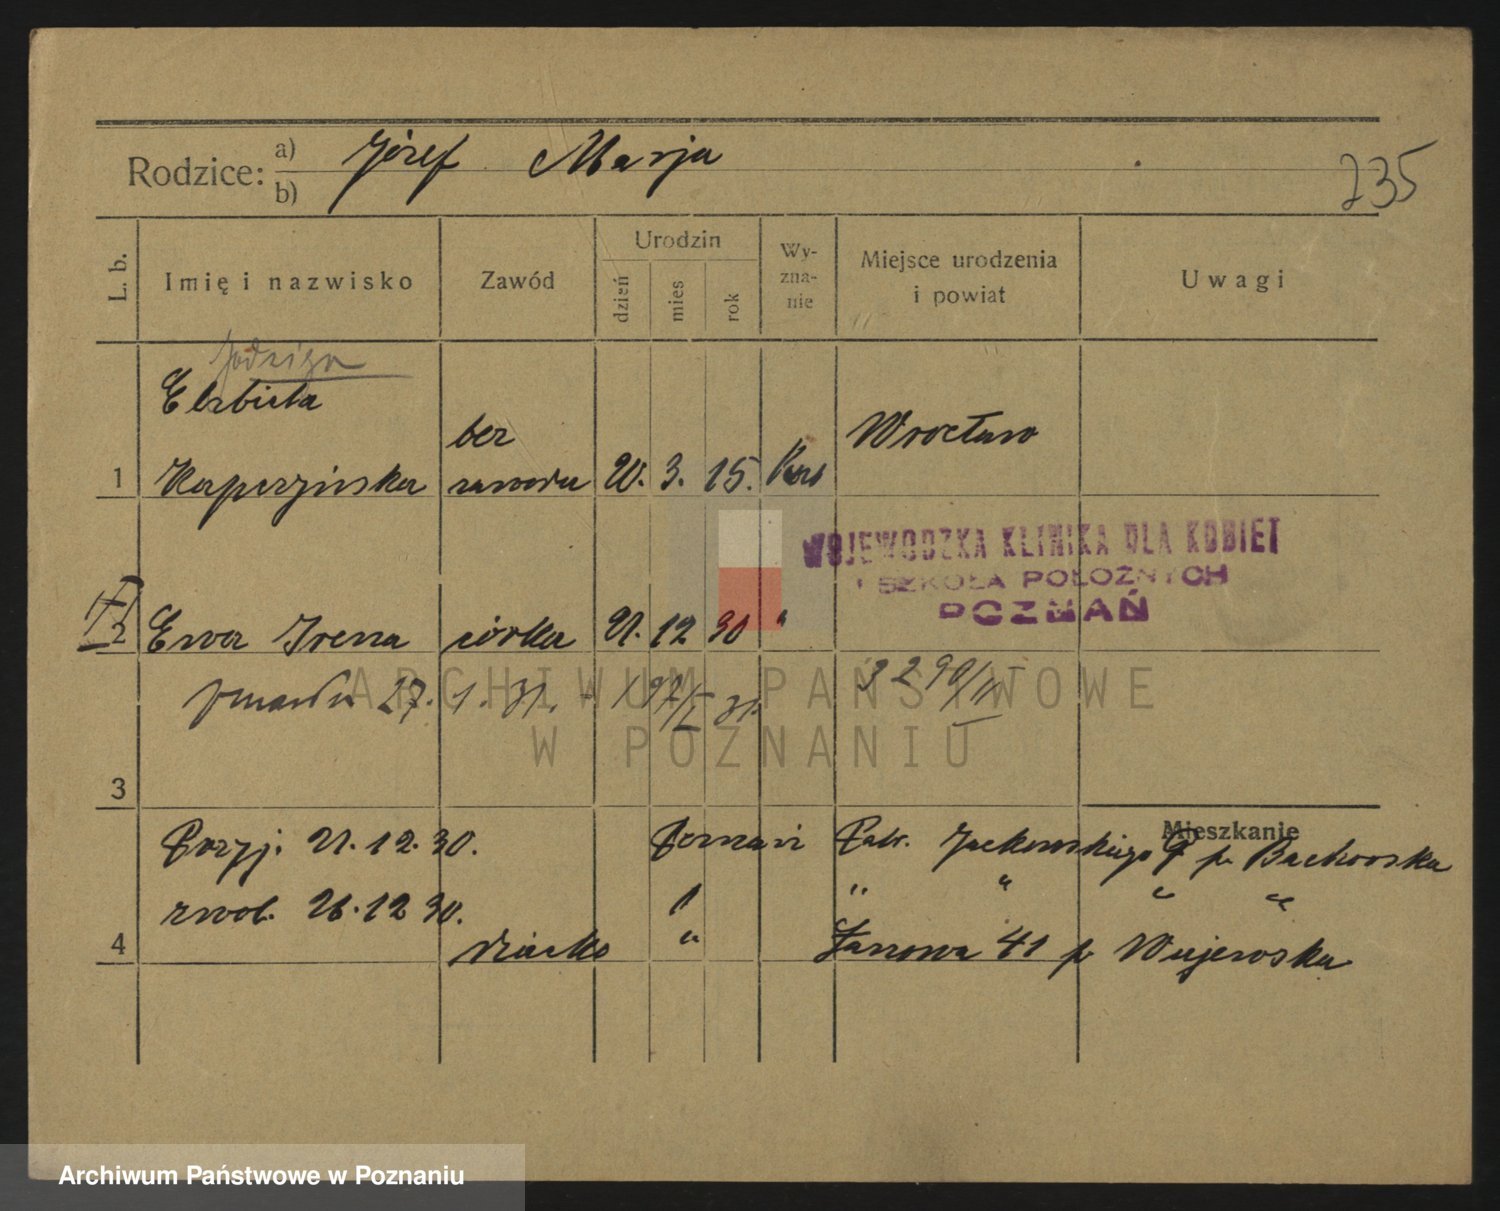 Rodzice: a) b) Józef Marja
235
L. b. Imię i nazwisko Zawód Urodzin dzień mies rok Wy-zna-nie Miejsce urodzenia i powiat Uwagi
Jadwiga
Elżbieta
bez Wrocław
1 Kasperzyńska zawodu 20. 3. 15.
WOJEWODZKA KLINIKA DLA KOBIET
I SZKOŁA POŁOŻNYCH
POZNAŃ
2 Ewa Irena córka 21. 12 30 "
zmarła 27. 1. 31. - 197/I 31. 3290/II
ARCHIWUM PAŃSTWOWE
W POZNANIU
3
Mieszkanie
Przyj. 21. 12. 30. Poznań Patr. Jackowskiego 9 p. Backowska
zwol. 26. 12 30. " " " " "
4 dziecko " Łanowa 41 p. Wujewska
Archiwum Państwowe w Poznaniu